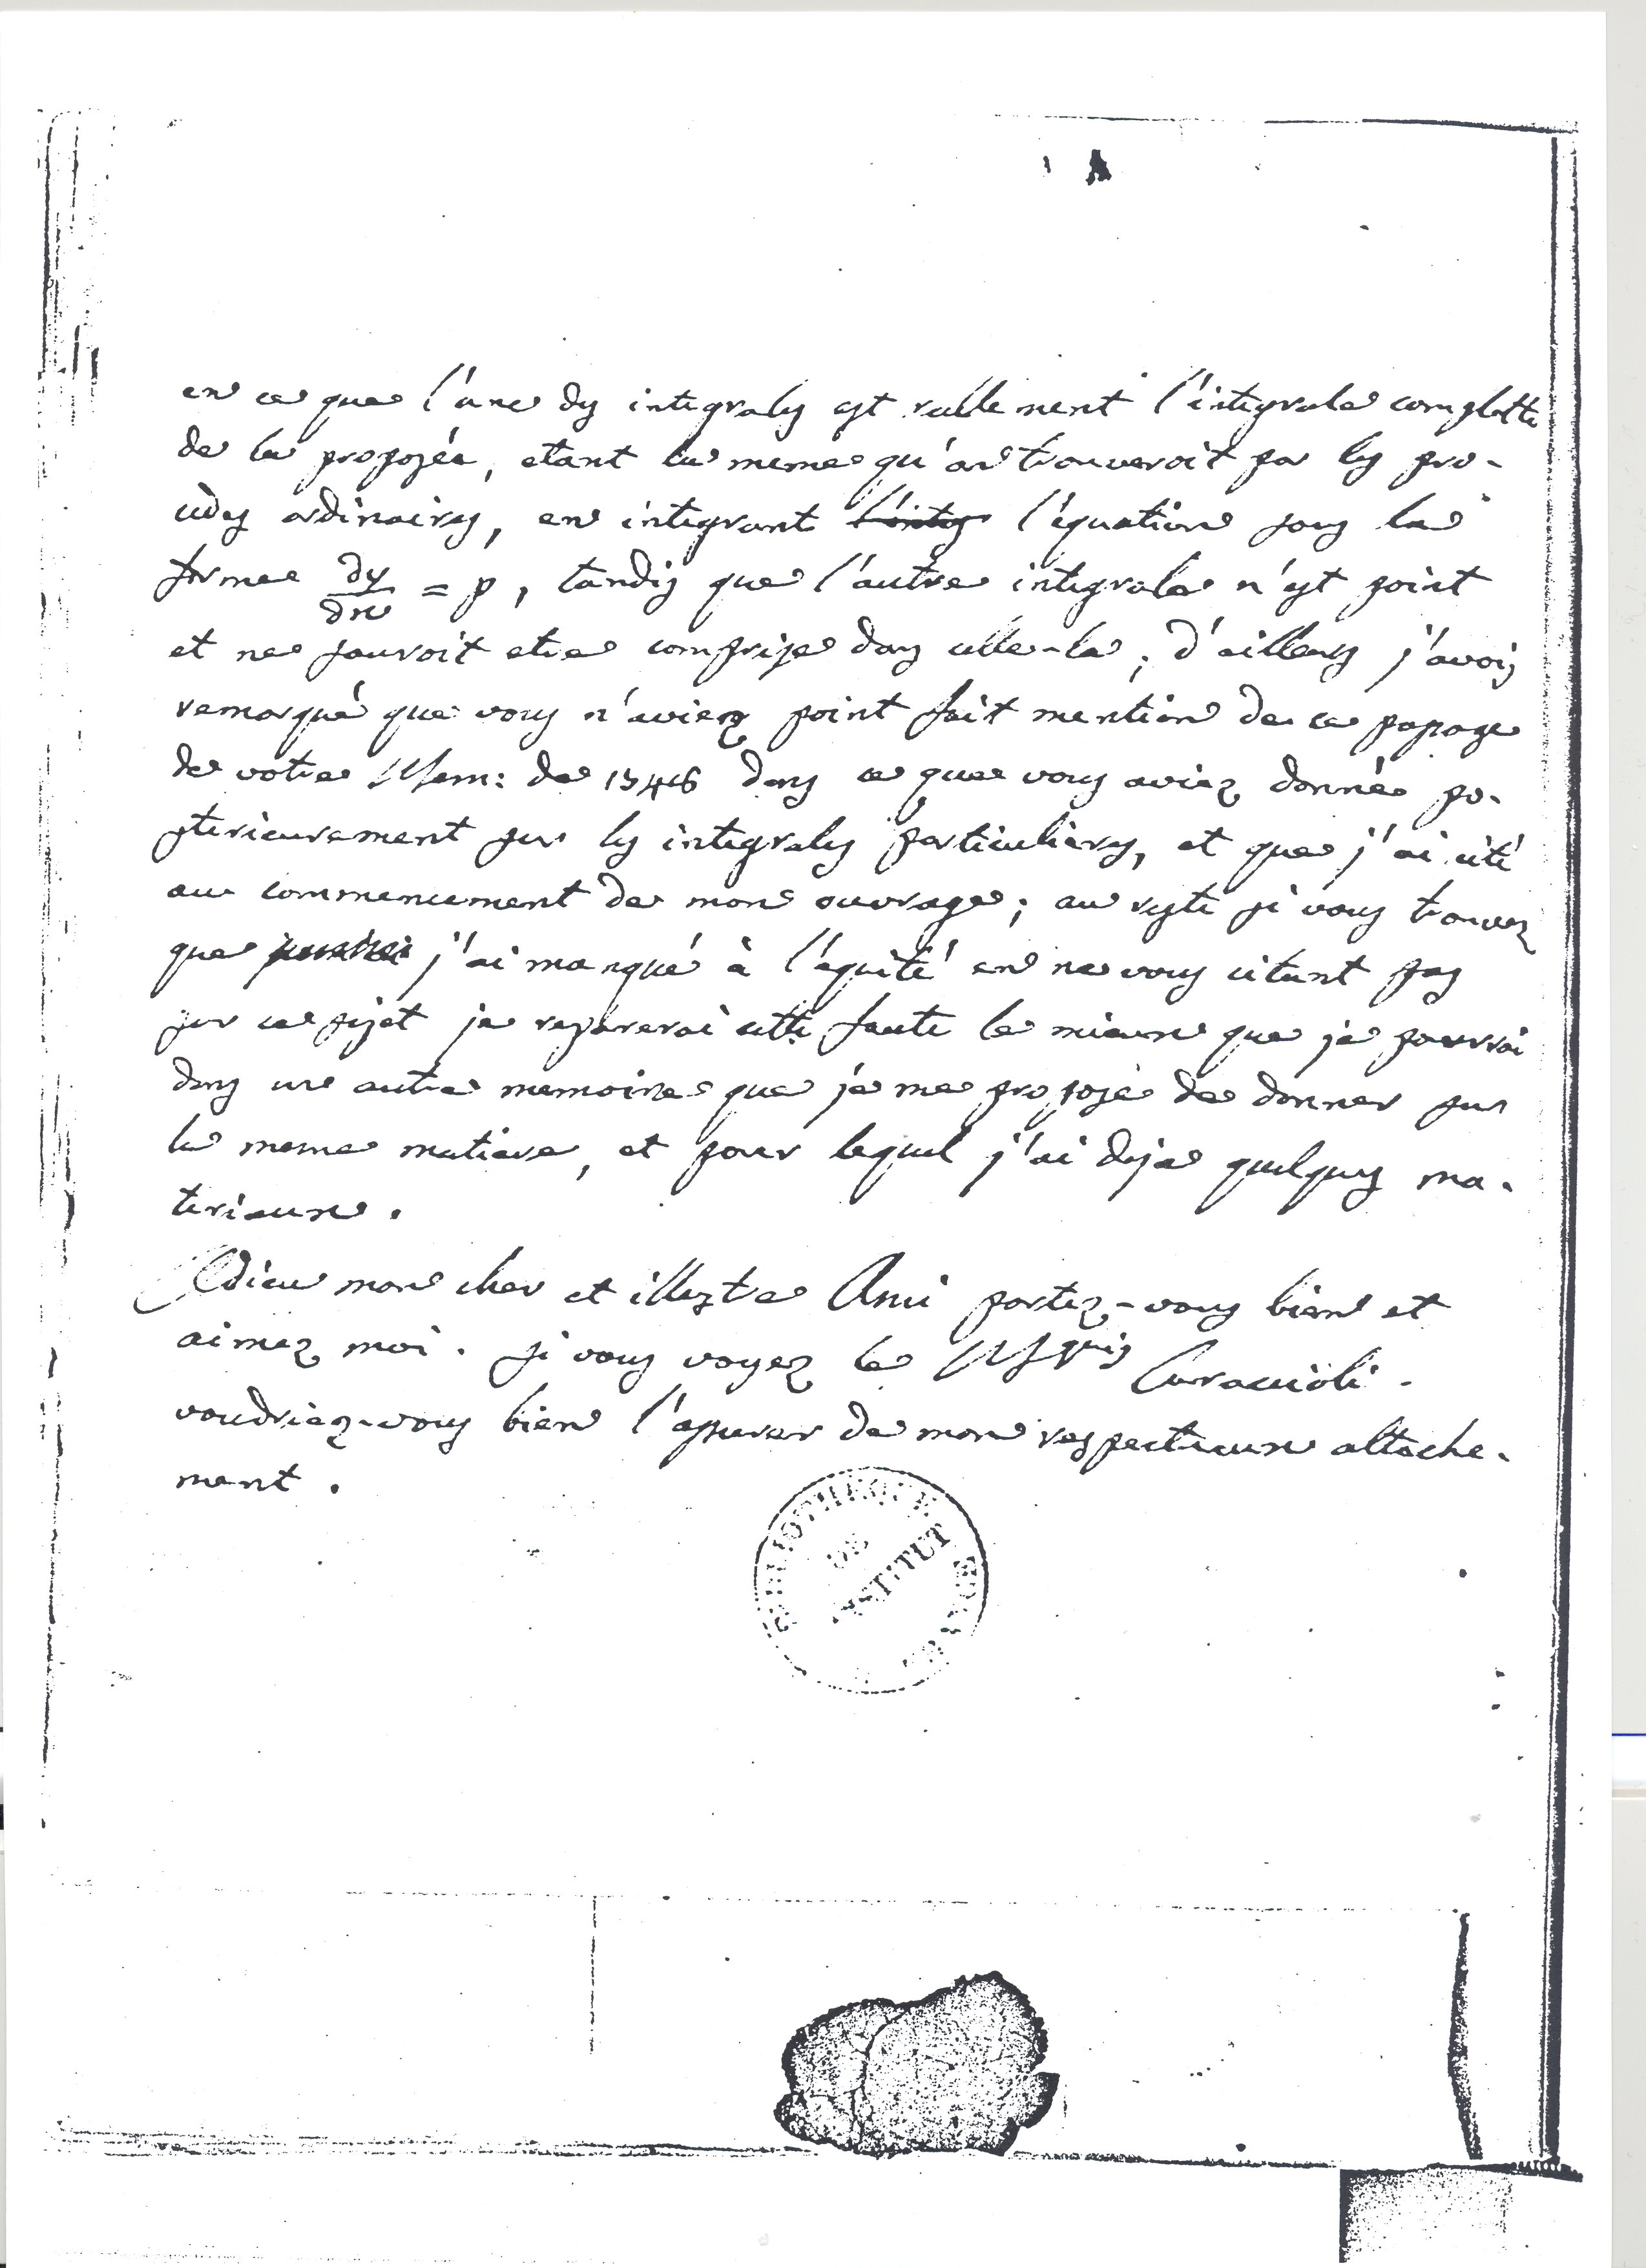 en ce que l'une des integrales est reellement l'integrale complette
de la proposée, etant la meme qu'on trouveroit par les pro-
cedes ordinaires, en integrant l'equation sous la
forme dy/dx = p, tandis que l'autre integrale n'est point
et ne sauroit etre comprise dans celle-la; d'ailleurs j'avois
remarqué que vous n'aviez point fait mention de ce passage
de votre Mem: de 1746 dans ce que vous aviez donné po-
sterieurement sur les integrales particulieres, et que j'ai cité
au commencement de mon ouvrage; au reste si vous trouvez
que j'ai manqué à l'equité en ne vous citant pas
sur ce sujet je reparerai cette faute le mieux que je pourrai
dans un autre memoire que je me propose de donner sur
la meme matiere, et pour lequel j'ai deja quelques ma-
teriaux.
Adieu mon cher et illustre Ami portez-vous bien et
aimez moi. si vous voyez le Mquis Caraccioli.
voudriez-vous bien l'assurer de mon respectueux attache-
ment.
BIBLIOTHEQUE
DE
INSTITUT